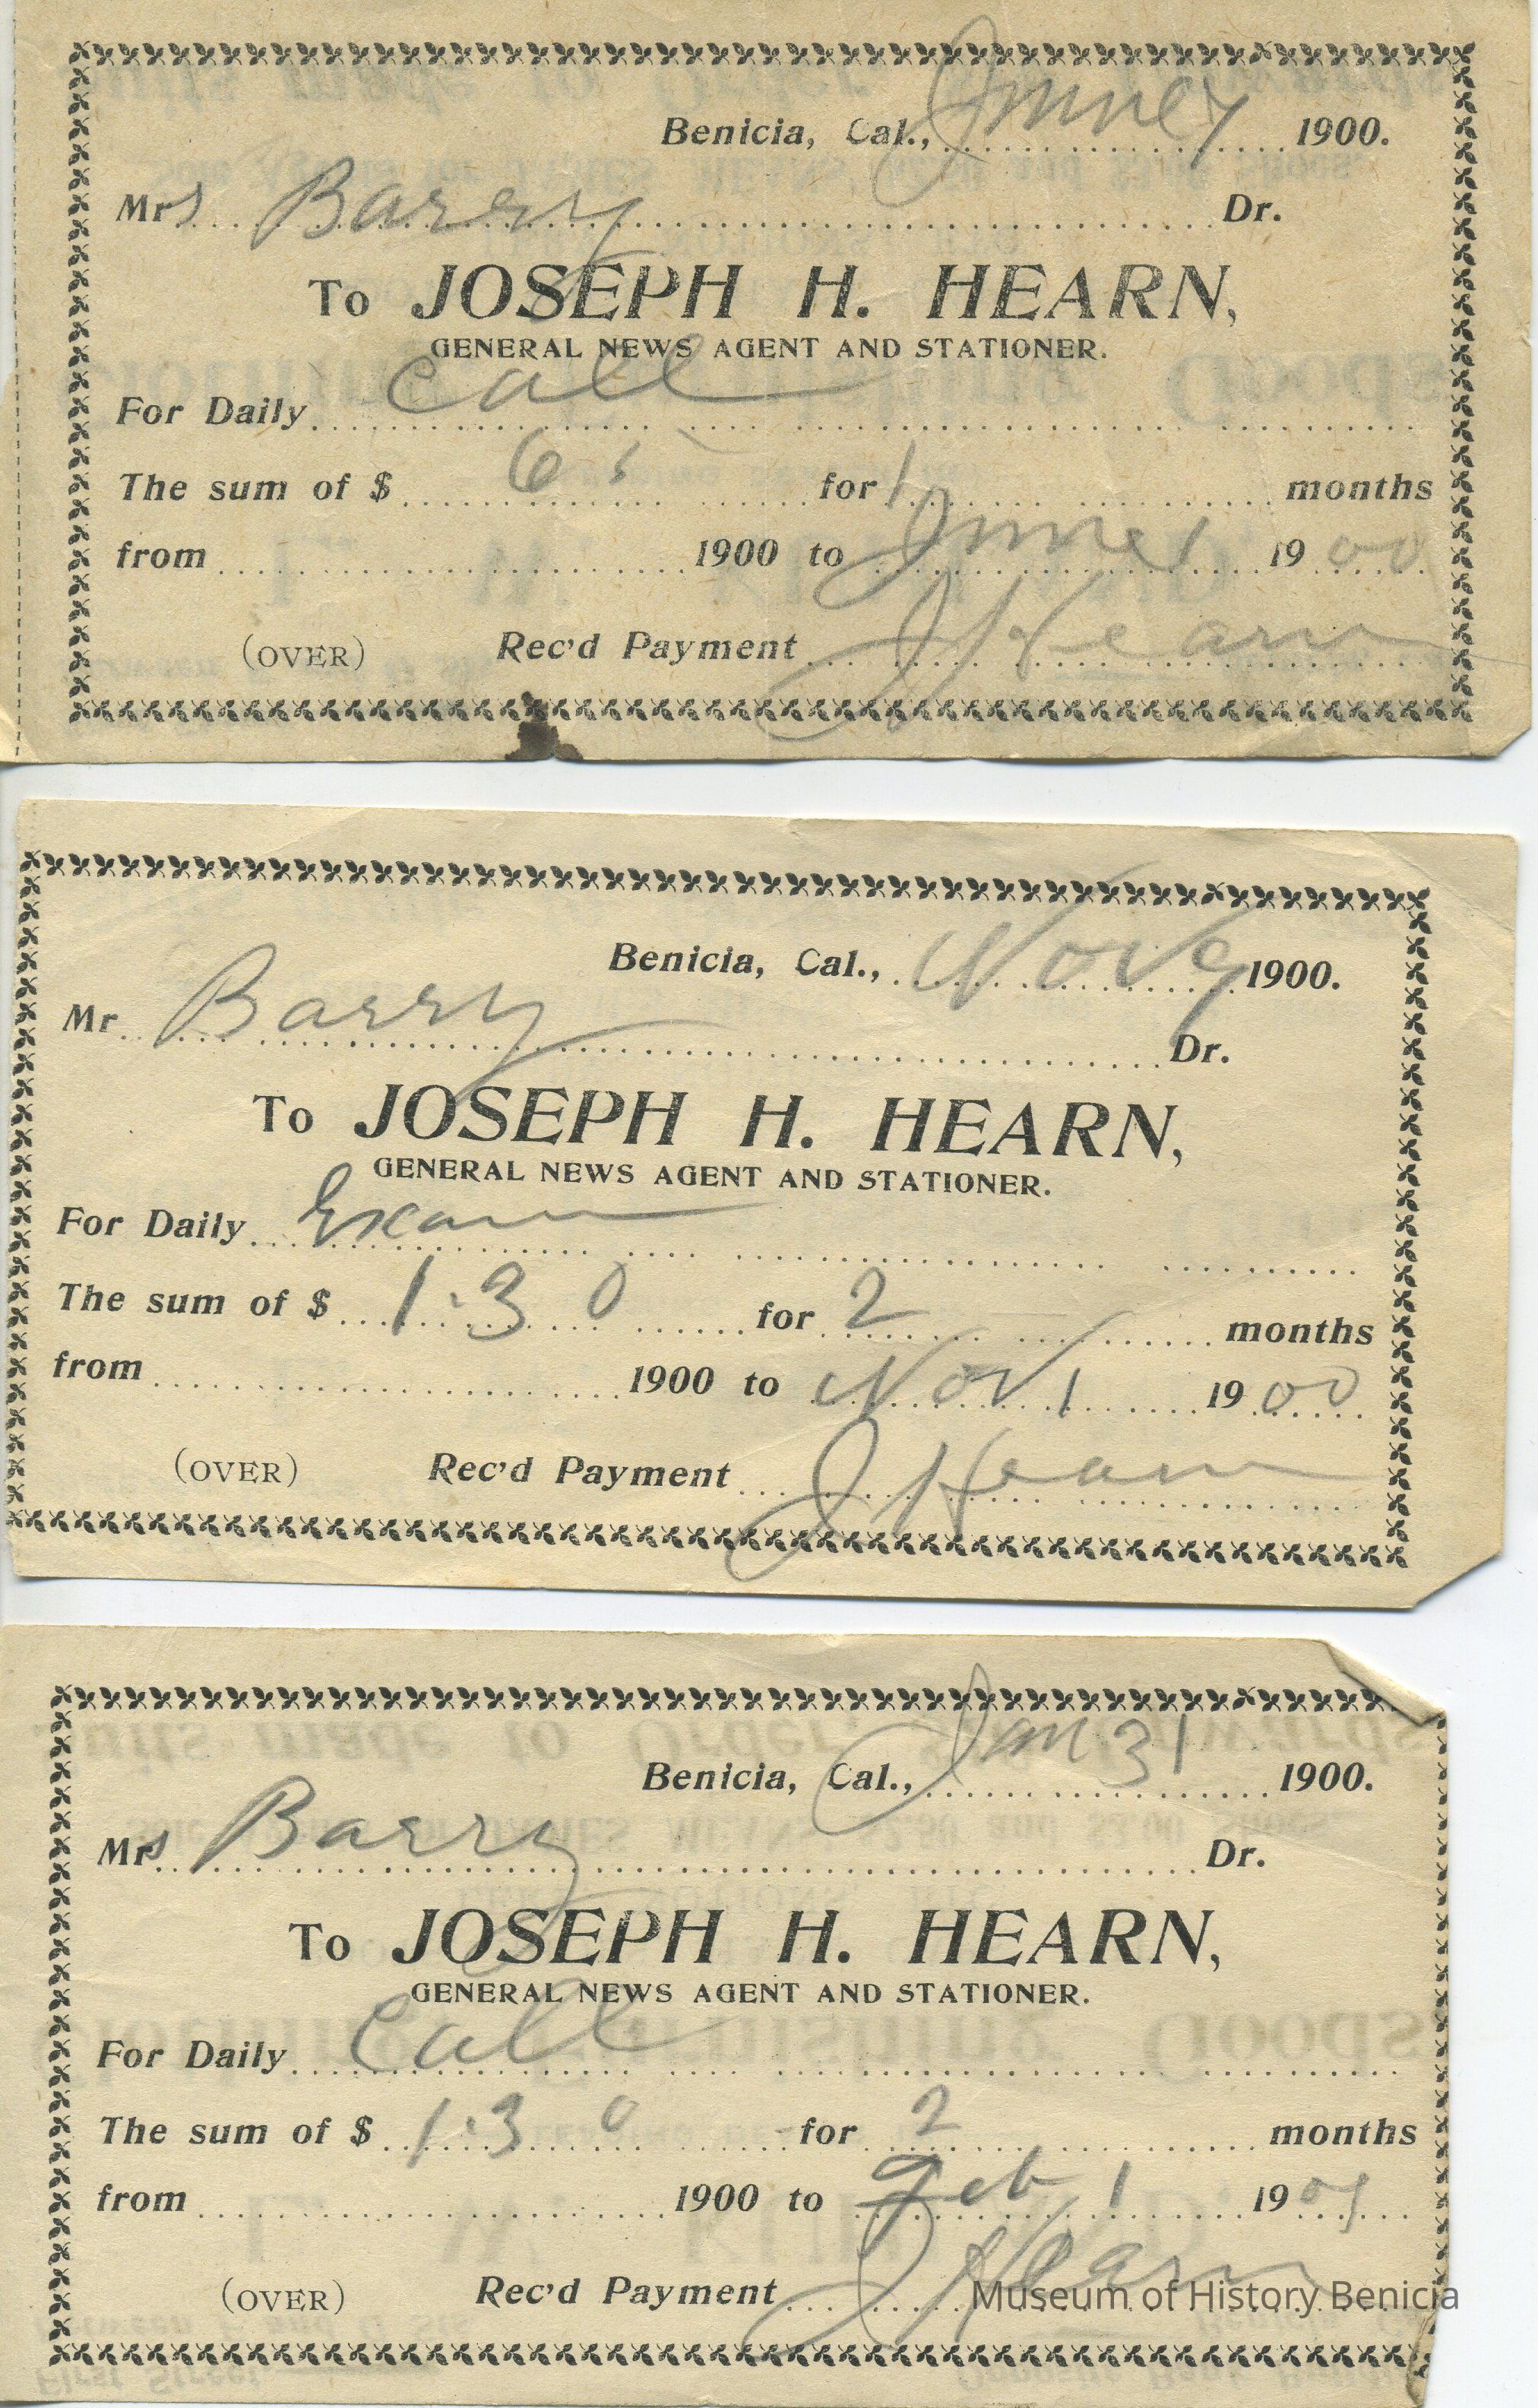 Benicia, Cal., June 7 1900.
Mrs Barry Dr.
To JOSEPH H. HEARN,
GENERAL NEWS AGENT AND STATIONER.
For Daily Call
The sum of $ 65 for 1 months
from 1900 to June 1 1900
(OVER) Rec'd Payment J Hearn
Benicia, Cal., Nov 9 1900.
Mr Barry Dr.
To JOSEPH H. HEARN,
GENERAL NEWS AGENT AND STATIONER.
For Daily Exam
The sum of $ 1.30 for 2 months
from 1900 to Nov 1 1900
(OVER) Rec'd Payment J Hearn
Benicia, Cal., Jan 31 1900.
Mrs Barry Dr.
To JOSEPH H. HEARN,
GENERAL NEWS AGENT AND STATIONER.
For Daily Call
The sum of $ 1.30 for 2 months
from 1900 to Feb 1 190
(OVER) Rec'd Payment J Hearn
Museum of History Benicia